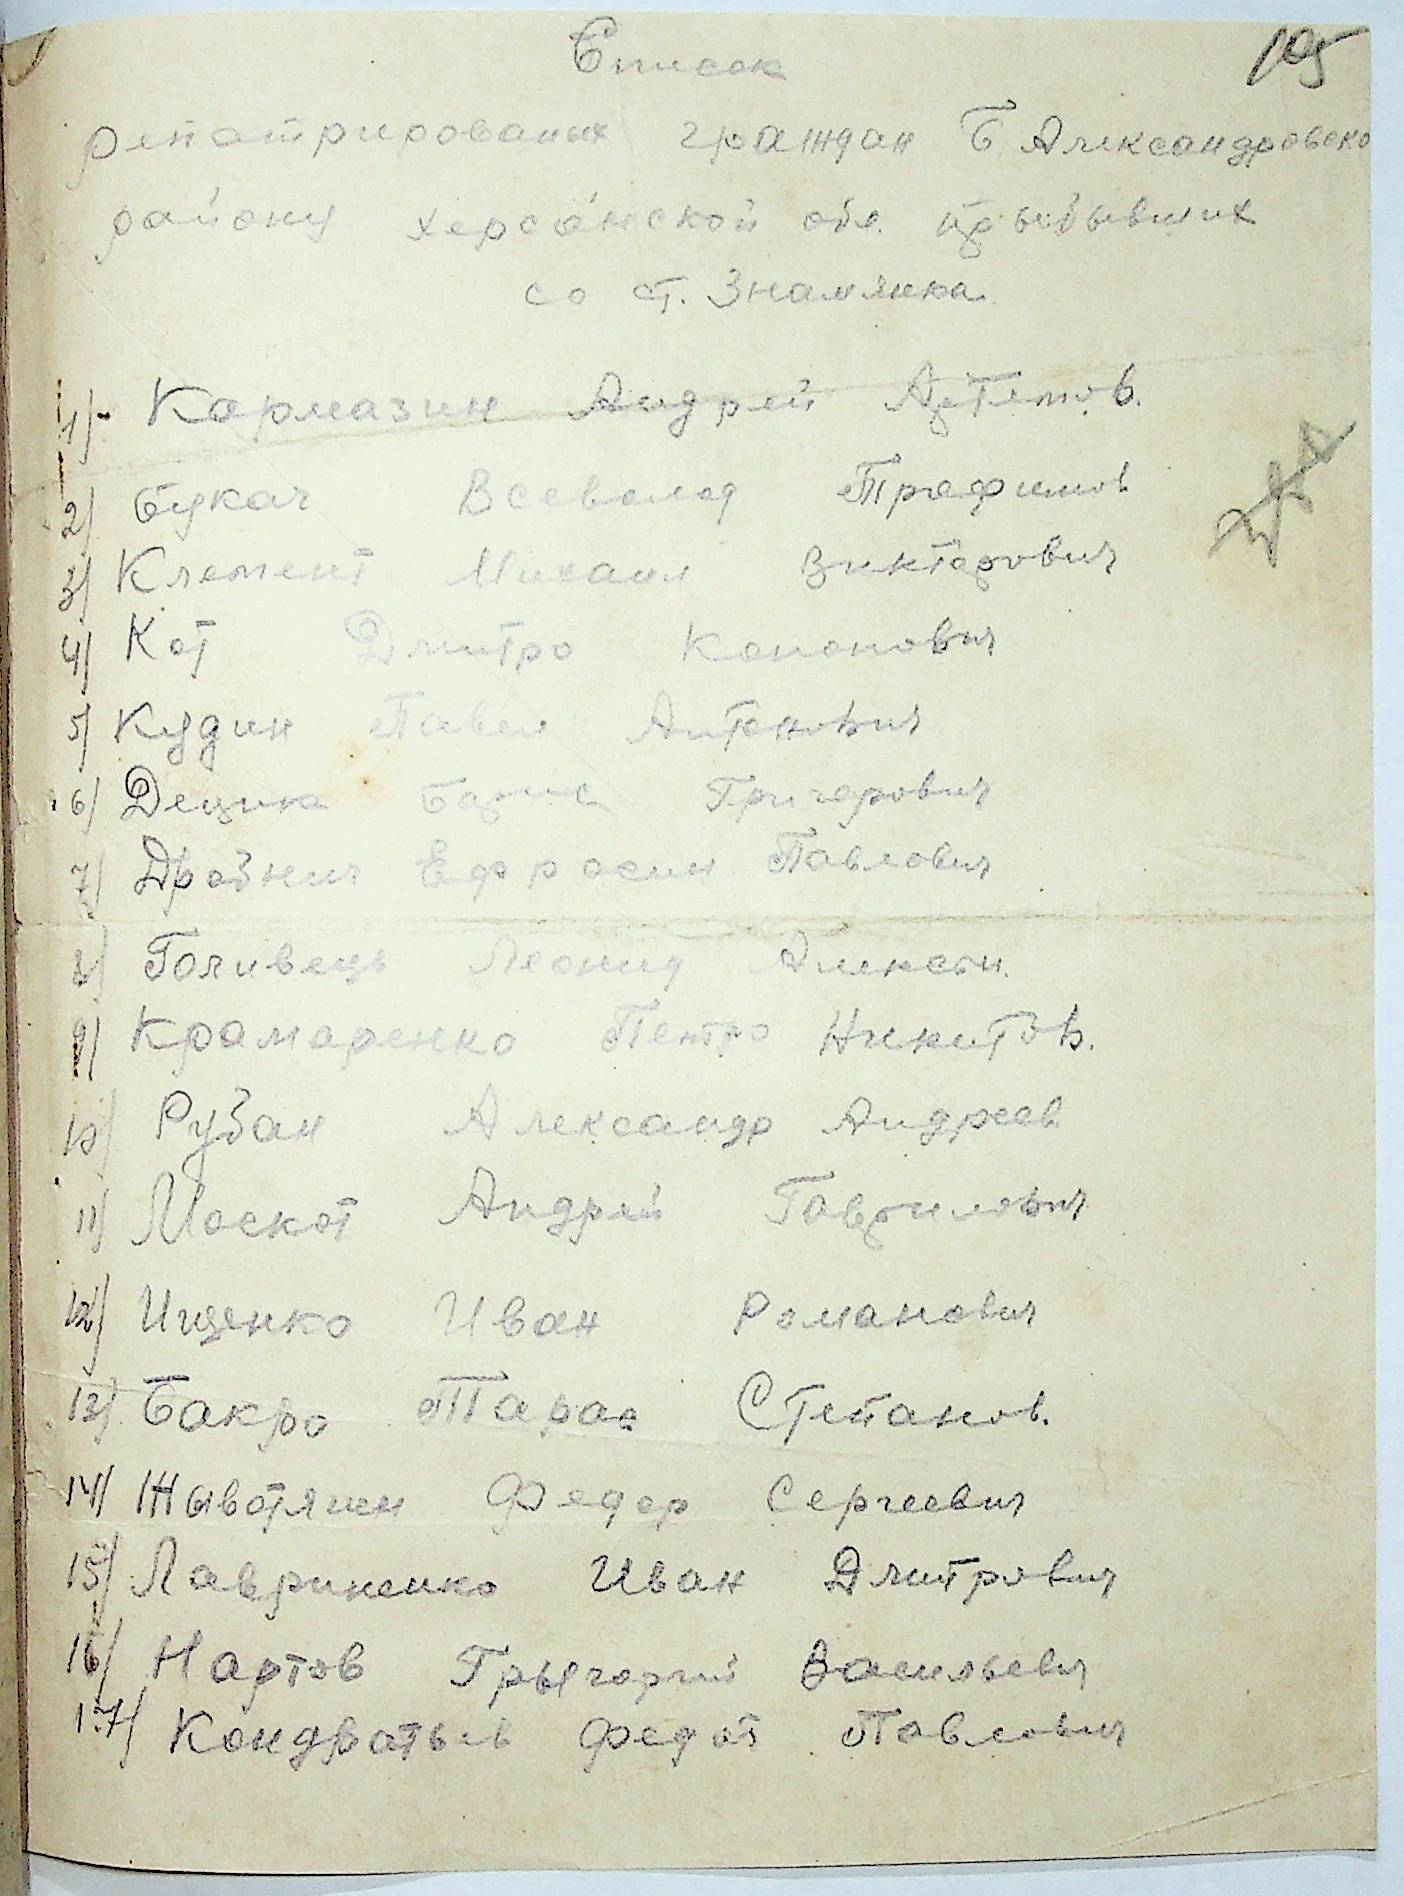 105
Список
репатрированых граждан Б Александровско
району херсонской обл. прыбывших
со ст. Знамянка
1) Кармазин Андрей Артемов.
2) Букач Всеволод Трафимов
3) Клемент Михаил Викторович
4) Кот Дмитро Кононович
5) Кудин Павел Антонович
6) Децик Борис Григорович
7) Дробнич Ефросин Павлович
8) Голивець Леонид Алексеи.
9) Крамаренко Пентро Никитов.
10) Рубан Александр Андреев
11) Москот Андрей Гаврилович
12) Ищенко Иван Романович
13) Бакро Тарас Степанов.
14) Жывотягин Федор Сергеевич
15) Лавриненко Иван Дмитрович
16) Нартов Грыгорий Васильевич
17) Кондратьев Федот Павлович